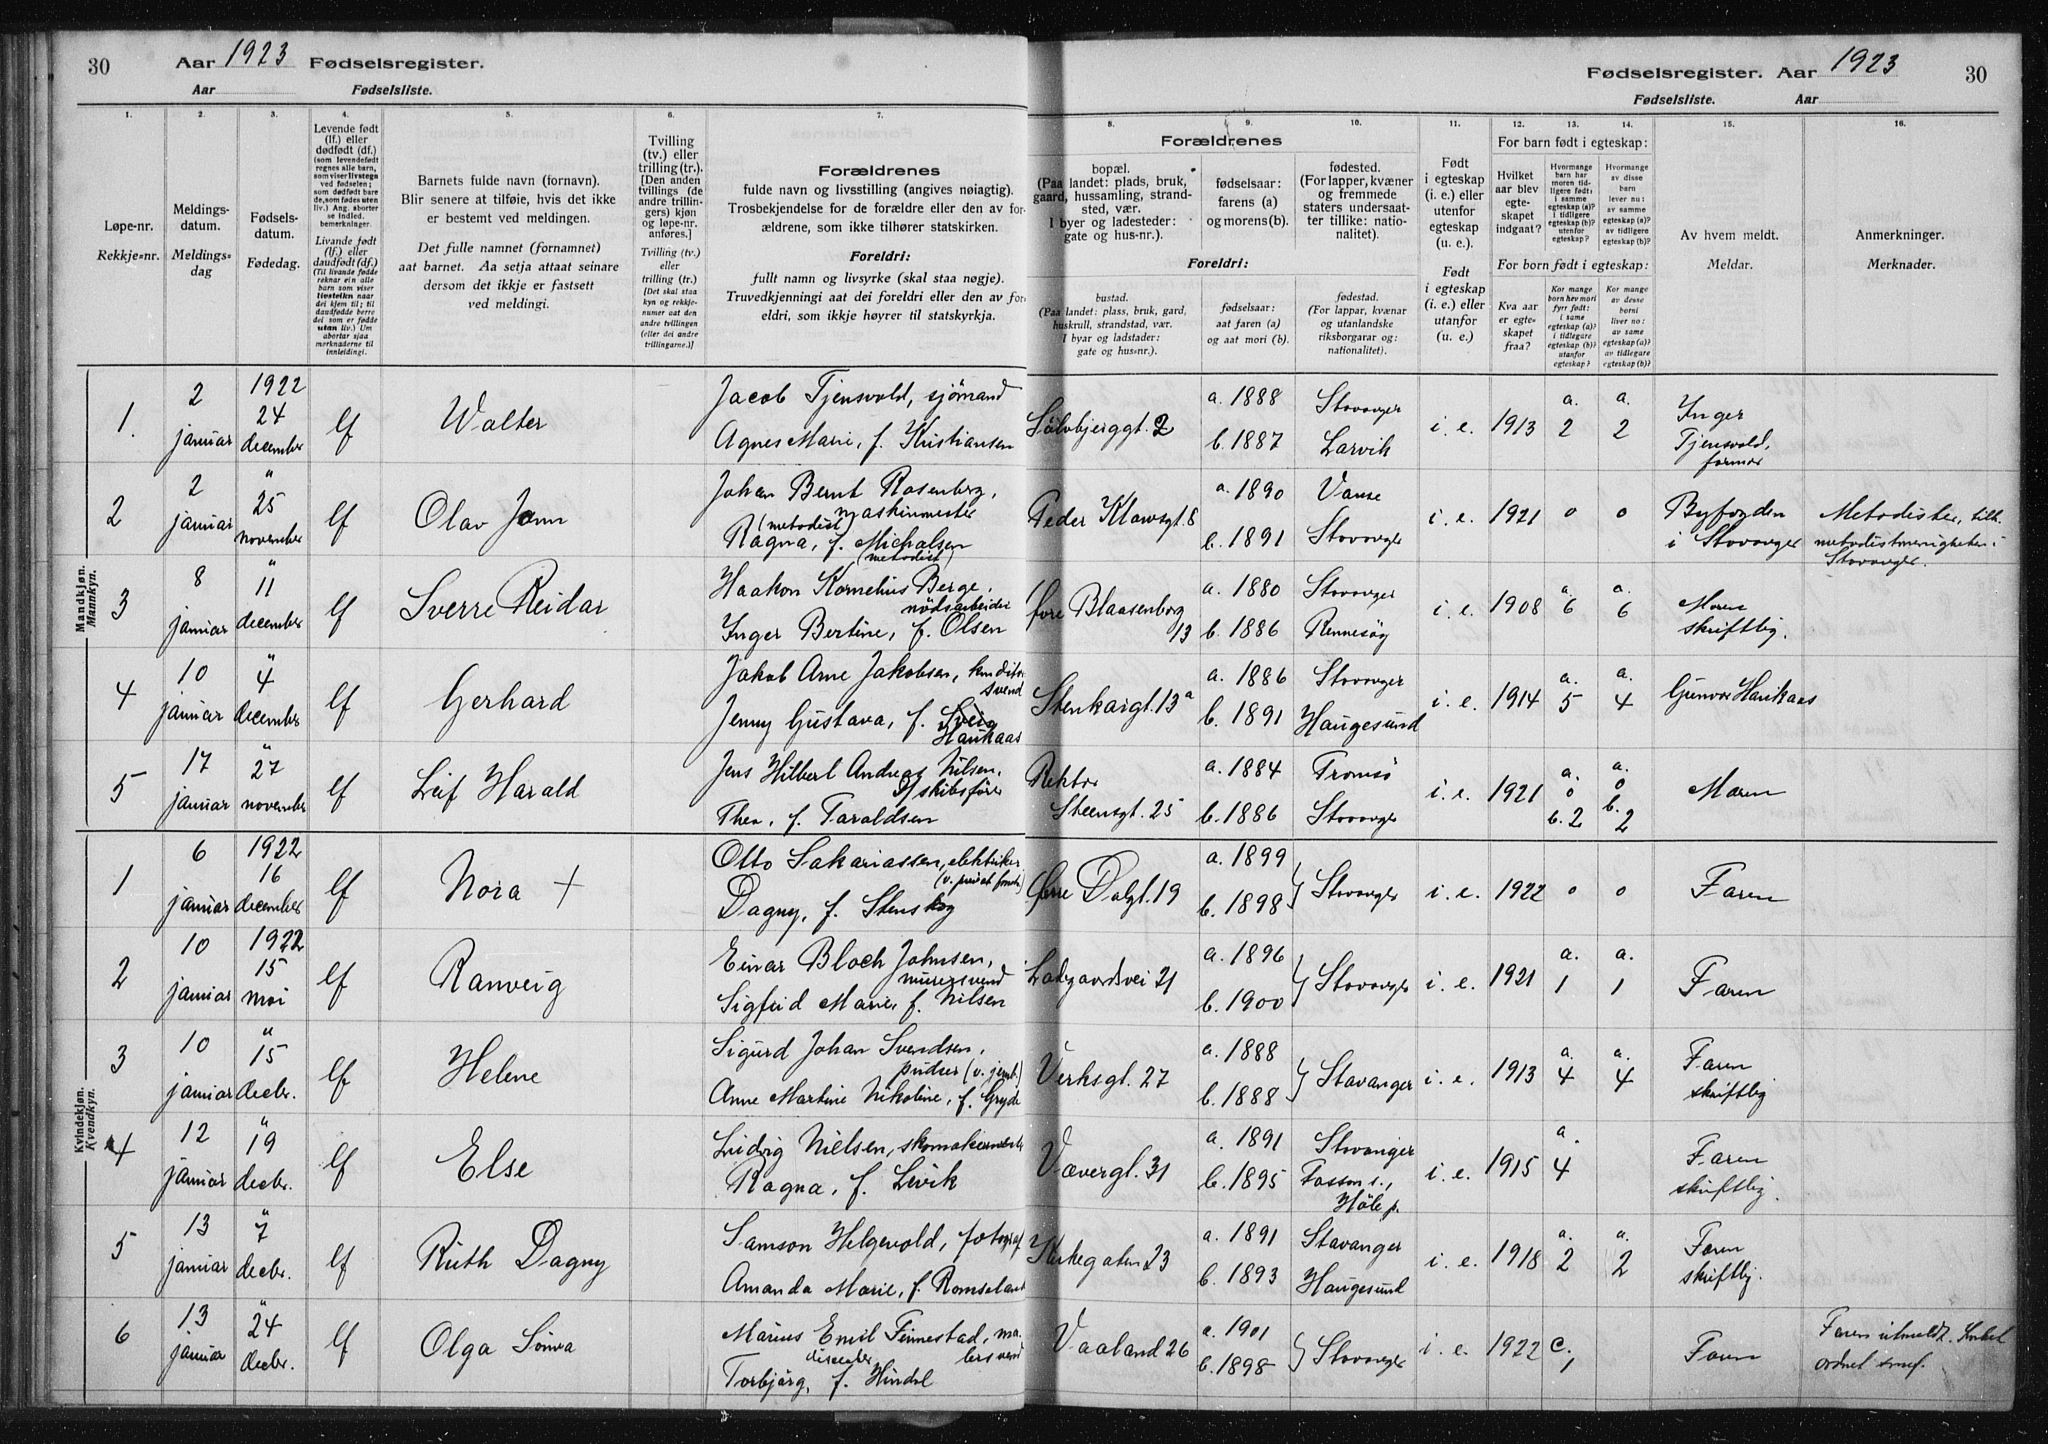 30
Aar 1923 Fødselsregister.
Aar Fødselsliste.
Fødselsregister. Aar 1923
30
Fødselsliste. Aar
1. 2. 3. 4. 5. 6. 7. 8. 9. 10. 11. 12. 13. 14. 15. 16.
Løpe-nr.
Rekkje-nr.
Meldings-
datum.
Meldings-
dag
Fødsels-
datum.
Fødedag.
Levende født
(lf.) eller
dødfødt (df.)
(som levendefødt
regnes alle barn,
som viser livstegn
ved fødselen;
som dødfødt bare
de, som fødes uten
liv.) Ang. aborter
se indled.
bemerkninger.
Livande født
(lf.) eller
daudfødt (df.)
(Til livande fødde
reknar ein alle
barn som viser
livsteikn naar
dei kjem til; til
daudfødde berre
dei som er fødde
utan liv.) Um
abortar sjaa
merknaderne til
innleidingi.
Barnets fulde navn (fornavn).
Blir senere at tilføie, hvis det ikke
er bestemt ved meldingen.
Det fulle namnet (fornamnet)
aat barnet. Aa setja attaat seinare
dersom det ikkje er fastsett
ved meldingi.
Tvilling
(tv.) eller
trilling (tr.).
[Den anden
tvillings (de
andre trillin-
gers) kjøn
og løpe-nr.
anføres.]
Tvilling (tv.)
eller
trilling (tr.)
[Det skal staa
kyn og rekkje-
numer aat den
andre tvillingen
(eller dei andre
trillingarne.)]
Forældrenes
fulde navn og livsstilling (angives nøiagtig).
Trosbekjendelse for de forældre eller den av for-
ældrene, som ikke tilhører statskirken.
Foreldri:
fullt namn og livsyrke (skal staa nøgje).
Truvedkjenningi aat dei foreldri eller den av for-
eldri, som ikkje høyrer til statskyrkja.
Forældrenes
bopæl.
(Paa landet: plads, bruk,
gaard, hussamling, strand-
sted, vær.
I byer og ladesteder:
gate og hus-nr.).
fødselsaar:
farens (a)
og morens (b).
fødested.
(For lapper, kvæner
og fremmede
staters undersaat-
ter tillike: natio-
nalitet).
Foreldri:
bustad.
(Paa landet: plass, bruk, gard,
huskrull, strandstad, vær.
I byar og ladstader:
gate og hus-nr.).
fødselsaar:
aat faren (a)
og aat mori (b).
fødestad.
(For lappar, kvænar
og utanlandske
riksborgarar og:
nationalitet).
Født
i egteskap
(i. e.) eller
utenfor
egteskap
(u. e.).
Født
i egteskap
(i. e.) eller
utanfor
(u. e.)
For barn født i egteskap:
Hvilket
aar blev
egte-
skapet
indgaat?
Hvormange
barn har
moren tid-
ligere født:
i samme
egteskap (a)?
i tidligere
egteskap (b)?
utenfor
egteskap?
Hvormange
av disse
barn
lever nu:
av samme
egteskap (a)?
av tidligere
egteskap (b)?
For born født i egteskap:
Kva aar
er egte-
skapet
fraa?
Kor mange
born hev mori
fyrr født:
i same
egteskap (a)?
i tidlegare
egteskap (b)?
utanfor
egteskap?
Kor mange
av desse
borni
liver no:
av same
egteskap (a)?
av tidlegare
egteskap (b)?
Av hvem meldt.
Meldar.
Anmerkninger.
Merknader.
Mandkjøn.
Mannkyn.
1. 2 januar 1922 24 december lf Walter
Jacob Tjensvold, sjømand
Agnes Marie, f. Kristiansen
Sølvbjerggt. 2 a. 1888 b. 1887 Stavanger Larvik i. e. 1913 a. 2 a. 2 Inger Tjensvold, farmor
2 2 januar " 25 november lf Olav Jonn
Johan Bernt Rosenberg, maskinmester
(metodist)
Ragna, f. Michalsen
(metodist)
Peder Klowsgt. 8 a. 1890 b. 1891 Vanse Stavanger i. e. 1921 0 0 Byfogden i Stavanger
Metodister, tilh.
metodistmenigheten i
Stavanger.
3 8 januar " 11 december lf Sverre Reidar
Haakon Kornelius Berge,
Inger Bertine, f. Olsen
Øvre Blaasenborg 13 a. 1880 b. 1886 Stavanger Rennesøy i. e. 1908 a. 6 a. 6 Moren skriftlig.
4 10 januar " 4 december lf Gerhard
Jakob Arne Jakobsen, konditorsvend
Jenny Gustava, f. Haukaas
Stenkargt. 13 a a. 1886 b. 1891 Stavanger Haugesund i. e. 1914 a. 5 a. 4 Gunvor Haukaas
5 17 januar " 27 november lf Leif Harald
Jens Hilbert Andreas Nilsen, skibsfører
Thea, f. Taraldsen
Rektor Steensgt. 25 a. 1884 b. 1886 Tromsø Stavanger i. e. 1921 a. 0 b. 2 a. 0 b. 2 Moren
Kvindekjøn.
Kvendkyn.
1 6 januar 1922 16 december lf Nora +
Otto Sakariassen, elektriker
Dagny, f. Stenskog
Øvre Dalgt. 19 a. 1899 b. 1898 Stavanger i. e. 1922 0 0 Faren
2 10 januar 1922 15 mai lf Ranveig
Einar Bloch Johnsen, murersvend
Sigfrid Marie, f. Nilsen
Ladegaardsvei 21 a. 1896 b. 1900 Stavanger i. e. 1921 a. 1 a. 1 Faren
3 10 januar " 15 decbr. lf Helene
Sigurd Johan Svendsen, pudser (v. jernb.)
Anne Martine Nikoline, f. Gryde
Verksgt. 27 a. 1888 b. 1888 Stavanger i. e. 1913 a. 4 a. 4 Faren skriftlig
4 12 januar " 19 decbr. lf Else
Ludvig Nielsen, skomakermester
Ragna, f. Levik
Vævergt. 31 a. 1891 b. 1895 Stavanger Fossan s., Høle p. i. e. 1915 a. 4 Faren skriftlig.
5 13 januar " 7 decbr. lf Ruth Dagny
Samson Helgevold, fotograf
Amanda Marie, f. Romseland
Kirkegaten 23 a. 1891 b. 1893 Stavanger Haugesund i. e. 1918 a. 2 a. 2 Faren skriftlig.
6 13 januar " 24 decbr. lf Olga Sonva
Marius Emil Finnestad, malersvend
dissenter
Torbjørg, f. Hindal
Vaaland 26 a. 1901 b. 1898 Stavanger i. e. 1922 c. 1 Faren
Faren utmeldt.